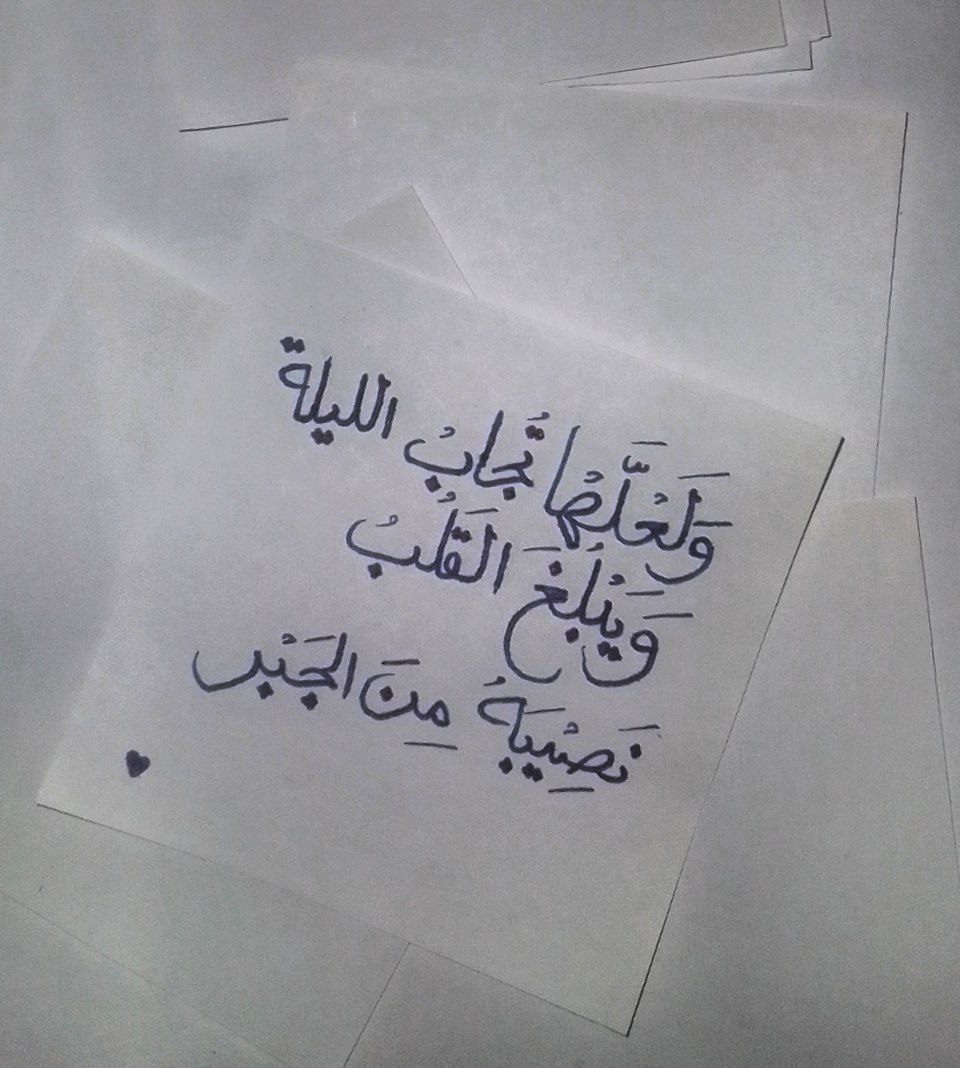 وَلَعَلَّهَا تُجَابُ الليلة
وَيَبْلُغَ القَلْبُ
نَصِيْبَهُ مِنَ الجَبْر